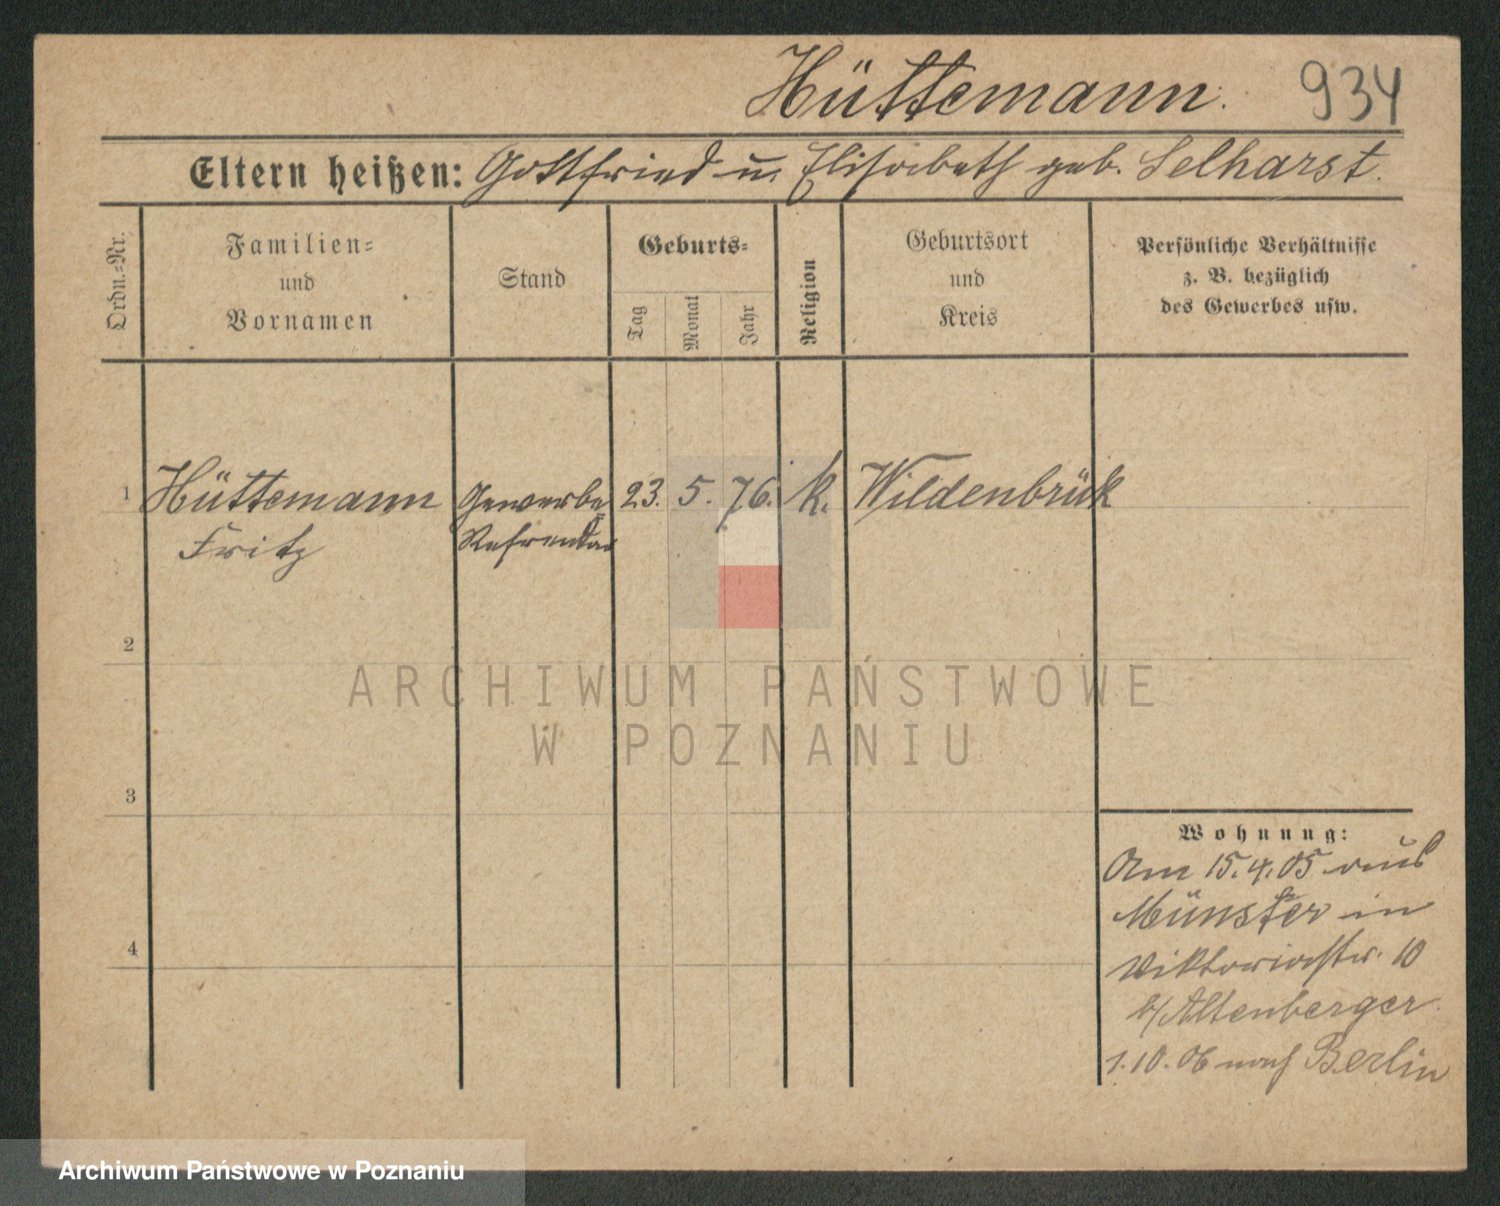 Hüttemann. 934
Eltern heißen: Gottfried u. Elisabeth geb. Selharst.
Ordn.-Nr.
Familien-
und
Vornamen
Stand
Geburts-
Tag
Monat
Jahr
Religion
Geburtsort
und
Kreis
Persönliche Verhältnisse
z. B. bezüglich
des Gewerbes usw.
1 Hüttemann Gewerbe 23. 5. 76. k. Wildenbrük
Fritz Refrendar
2
ARCHIWUM PAŃSTWOWE
W POZNANIU
3
Wohnung:
Am 15.4.05 aus
Münster in
Viktoriastr. 10
b/Altenberger.
1.10.06 nach Berlin
4
Archiwum Państwowe w Poznaniu